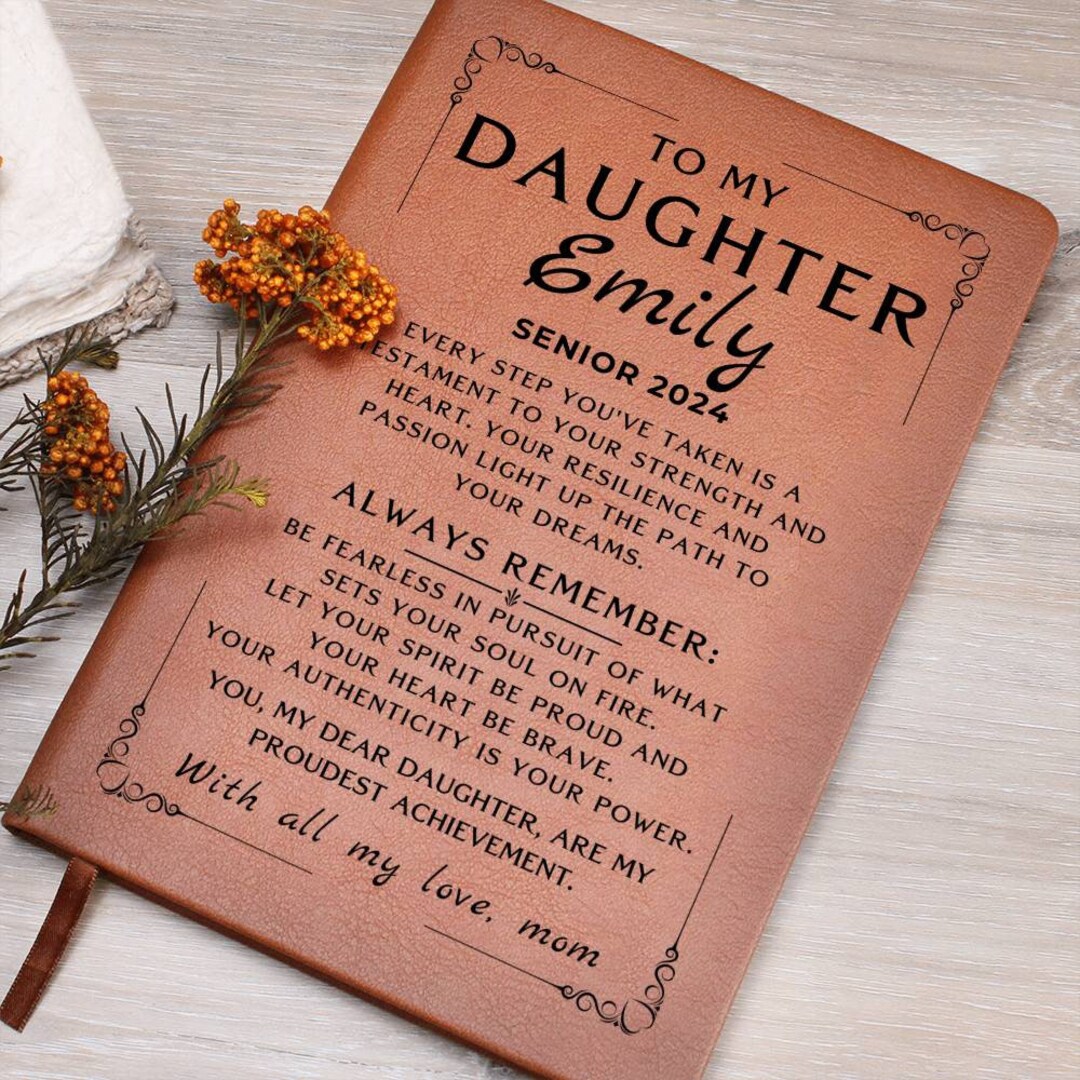 TO MY
DAUGHTER
Emily
SENIOR 2024
EVERY STEP YOU'VE TAKEN IS A
TESTAMENT TO YOUR STRENGTH AND
HEART. YOUR RESILIENCE AND
PASSION LIGHT UP THE PATH TO
YOUR DREAMS.
ALWAYS REMEMBER:
BE FEARLESS IN PURSUIT OF WHAT
SETS YOUR SOUL ON FIRE.
LET YOUR SPIRIT BE PROUD AND
YOUR HEART BE BRAVE.
YOUR AUTHENTICITY IS YOUR POWER.
YOU, MY DEAR DAUGHTER, ARE MY
PROUDEST ACHIEVEMENT.
With all my love, mom